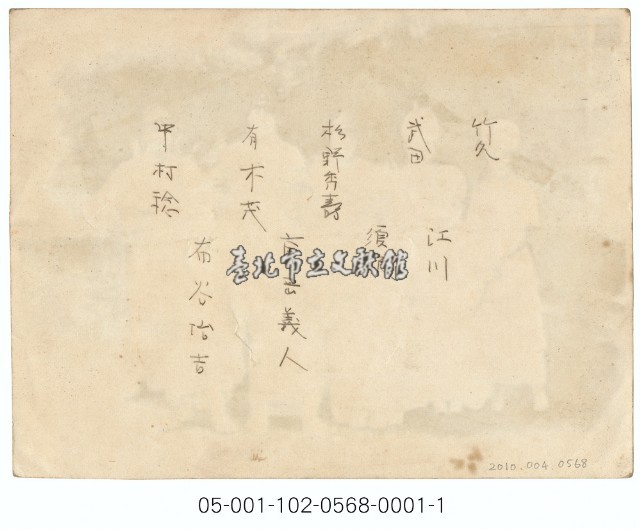 竹久
武田
江川
須
杉野秀壽
義人
有木茂
布谷治吉
中村稔
臺北市立文獻館
2010.004.0568
05-001-102-0568-0001-1